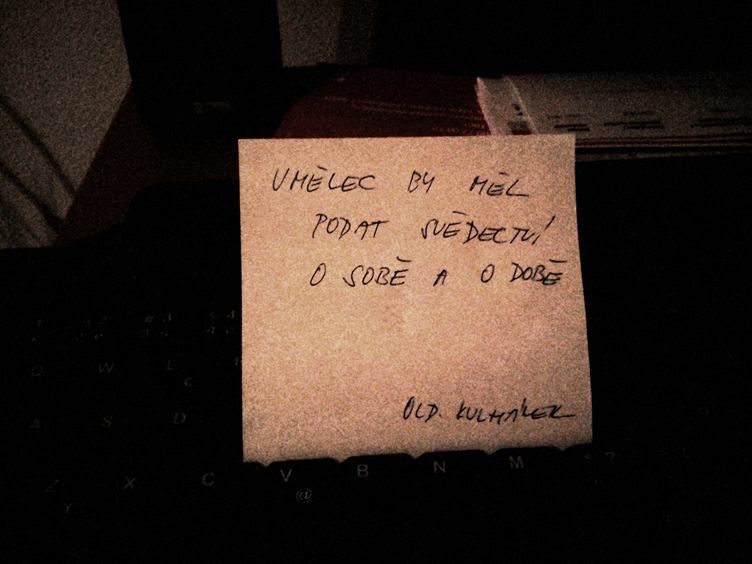 UMĚLEC BY MĚL
PODAT SVĚDECTVÍ
O SOBĚ A O DOBĚ
OLD. KULHÁNEK
Q W E
A S D
X C V B N M
@
Y